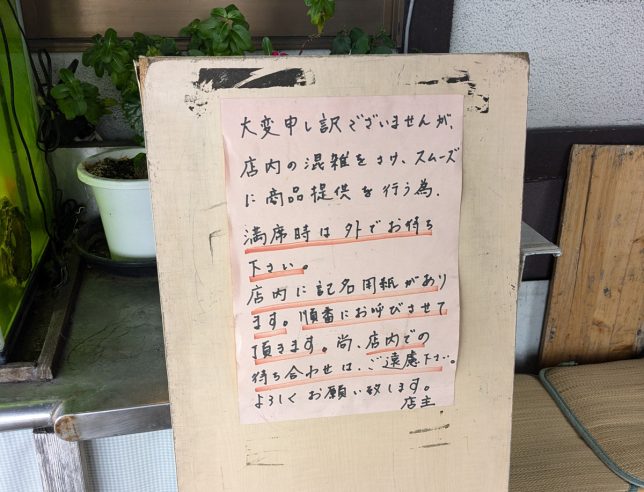 大変申し訳ございませんが、
店内の混雑をさけ、スムーズ
に商品提供を行う為、
満席時は外でお待ち
下さい。
店内に記名用紙があり
ます。順番にお呼びさせて
頂きます。尚、店内での
待ち合わせは、ご遠慮下さい。
よろしくお願い致します。
店主